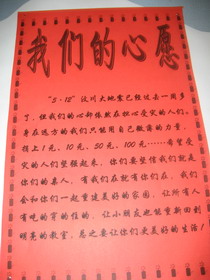 我们的心愿
"5·12"汶川大地震已经过去一周多
了，但我们的心却依然在担心受灾的人们。
身在远方的我们只能用自己微薄的力量，
捐上1元、10元、50元、100元……希望受
灾的人们坚强起来，你们要坚信我们就是
你们的亲人，有我们在就有你们在，我们
会和你们一起重建美好的家园，让所有人
有吃的穿的住的，让小朋友也能重新回到
明亮的教室，总之要让你们更美好的生活！